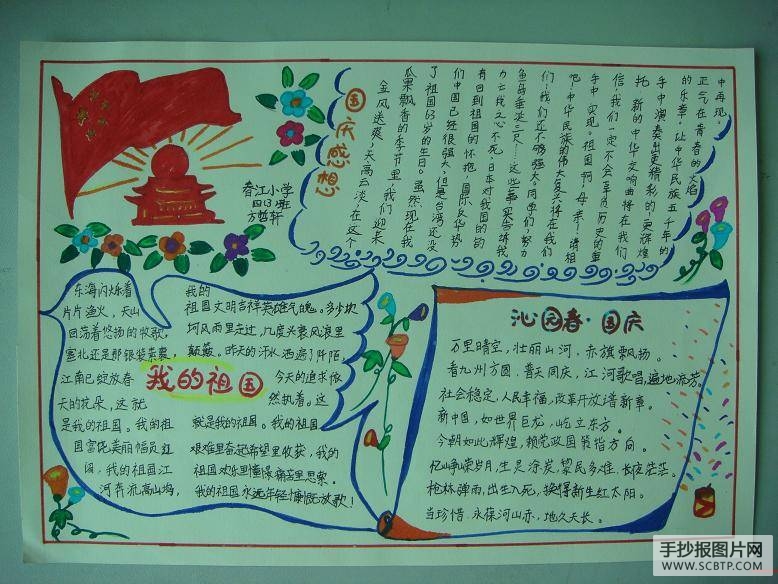 国庆感想
金风送爽,天高云淡,在这个
瓜果飘香的季节里,我们迎来
了祖国63岁的生日。虽然现在我
们中国已经很强大,但是台湾还没
有回到祖国的怀抱,国际反华势
力亡我之心不死,日本对我国的钓
鱼岛垂涎三尺……这些事实告诉我
们:我们还不够强大。同学们,努力
吧!中华民族的伟大复兴将在我们
手中实现。祖国啊!母亲!请相
信:我们一定不会辜负历史的重
托,新的中华交响曲将在我们
手中演奏出更精彩的!更辉煌
的乐章,让中华民族五千年的
正气在青春的火焰
中再现。
春江小学
四(3)班
方哲轩
我的祖国
东海闪烁着
片片渔火,天山
回荡着悠扬的牧歌,
塞北还是那银装素裹,
江南已绽放春
天的花朵,这就
是我的祖国。我的祖
国富饶美丽幅员辽
阔,我的祖国江
河奔流高山巍,
我的
祖国文明吉祥英雄气魄。多少坎
坷风雨里走过,几度兴衰风浪里
颠簸。昨天的汗水洒遍了阡陌,
今天的追求依
然执着。这
就是我的祖国。我的祖国
艰难里奋起希望里收获,我的
祖国欢乐里憧憬痛苦里思索。
我的祖国永远年轻慷慨放歌!
沁园春·国庆
万里晴空,壮丽山河,赤旗飘扬。
看九州方圆,普天同庆,江河歌唱,遍地流芳。
社会稳定,人民幸福,改革开放谱新章。
新中国,如世界巨龙,屹立东方。
今朝如此辉煌,赖党政国策指方向。
忆峥嵘岁月,生灵涂炭,黎民多难,长夜茫茫。
枪林弹雨,出生入死,换得新生红太阳。
当珍惜,永葆河山赤,地久天长。
手抄报图片网
WWW.SCBTP.COM